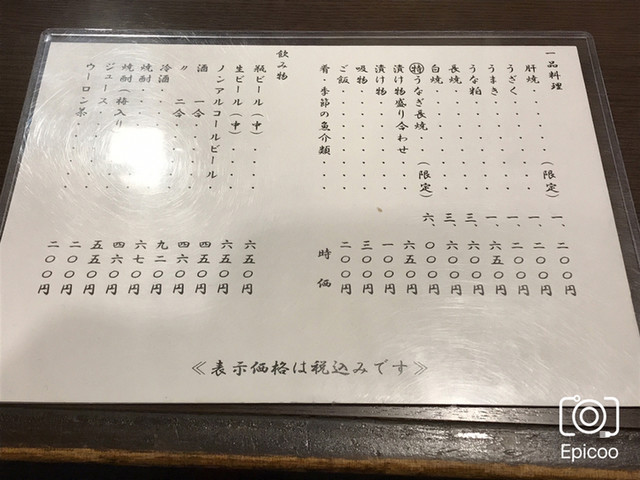 一品料理
肝焼・・・・・・(限定) 一、二〇〇円
うざく・・・・・・ 一、二〇〇円
うまき・・・・・・ 一、二〇〇円
うな粕・・・・・・ 一、六五〇円
長焼・・・・・・ 三、六〇〇円
白焼・・・・・・ 三、六〇〇円
㊕うなぎ長焼・(限定) 六、〇〇〇円
漬け物盛り合わせ・・ 六五〇円
漬け物・・・・・・ 一〇〇円
吸物・・・・・・ 三〇〇円
ご飯・・・・・・ 二〇〇円
肴・季節の魚介類・・ 時価
飲み物
瓶ビール(中)・・・ 六五〇円
生ビール(中)・・・ 六五〇円
ノンアルコールビール 四五〇円
酒 一合・・・・ 四六〇円
〃 二合・・・・ 九二〇円
冷酒・・・・・・ 六七〇円
焼酎・・・・・・ 四六〇円
焼酎(梅入り)・・・ 五五〇円
ジュース・・・・・ 二〇〇円
ウーロン茶・・・・ 二〇〇円
≪表示価格は税込みです≫
Epicoo